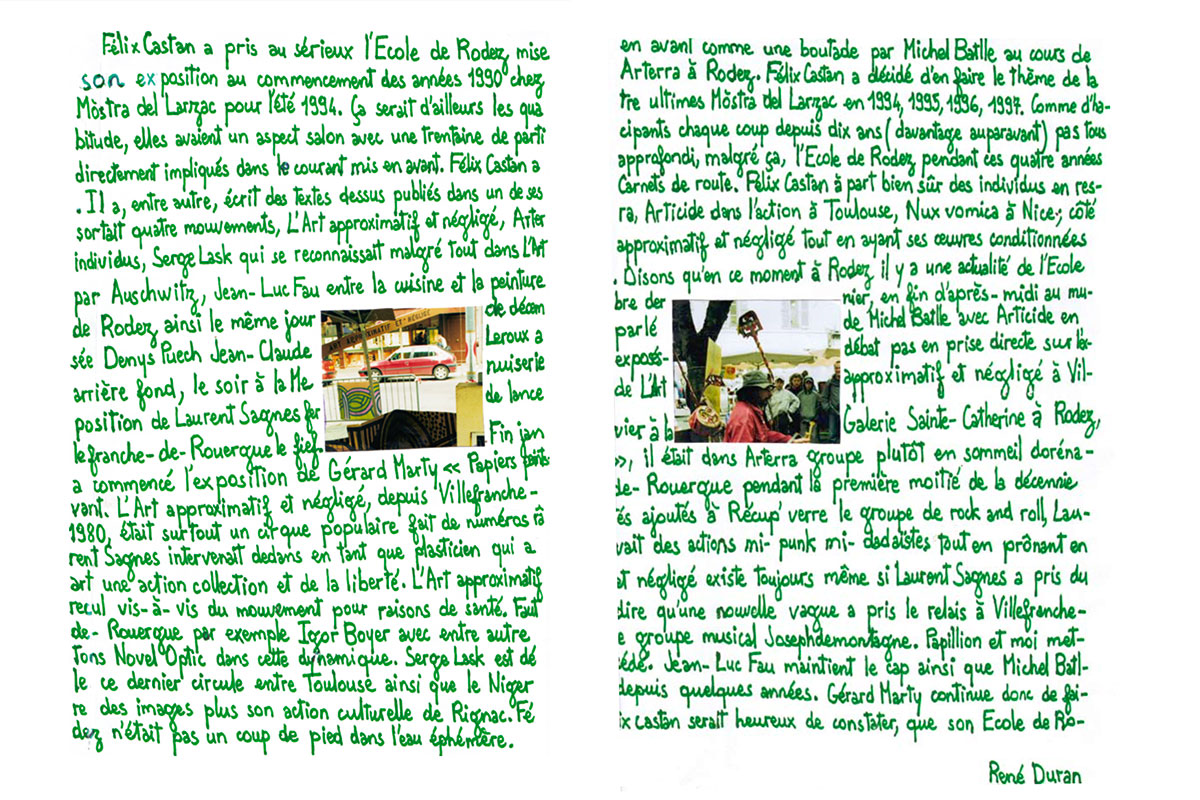 Félix Castan a pris au sérieux l'Ecole de Rodez, mise en avant comme une boutade par Michel Batlle au cours de
son exposition au commencement des années 1990 chez Arterra à Rodez. Félix Castan a décidé d'en faire le thème de la
Mòstra del Larzac pour l'été 1994. Ça serait d'ailleurs les qua tre ultimes Mòstra del Larzac en 1994, 1995, 1996, 1997. Comme d'ha-
bitude, elles avaient un aspect salon avec une trentaine de parti cipants chaque coup depuis dix ans (davantage auparavant) pas tous
directement impliqués dans le courant mis en avant. Félix Castan a approfondi, malgré ça, l'Ecole de Rodez pendant ces quatre années
. Il a, entre autre, écrit des textes dessus publiés dans un de ses Carnets de route. Félix Castan à part bien sûr des individus en res-
sortait quatre mouvements, L'Art approximatif et négligé, Arter ra, Articide dans l'action à Toulouse, Nux vomica à Nice; côté
individus, Serge Lask qui se reconnaissait malgré tout dans L'Art approximatif et négligé tout en ayant ses œuvres conditionnées
par Auschwitz, Jean-Luc Fau entre la cuisine et la peinture . Disons qu'en ce moment à Rodez il y a une actualité de l'Ecole
de Rodez, ainsi le même jour de décem bre der nier, en fin d'après-midi au mu-
sée Denys Puech Jean-Claude Leroux a parlé de Michel Batlle avec Articide en
arrière fond, le soir à la Me nuiserie exposés- débat pas en prise directe sur l'ex-
position de Laurent Sagnes fer de lance de L'Art approximatif et négligé à Vil-
lefranche-de-Rouergue le fief. Fin jan vier à la Galerie Sainte-Catherine à Rodez,
a commencé l'exposition de Gérard Marty « Papiers peints », il était dans Arterra groupe plutôt en sommeil doréna-
vant. L'Art approximatif et négligé, depuis Villefranche- de-Rouergue pendant la première moitié de la décennie
1980, était surtout un cirque populaire fait de numéros râ és ajoutés à Récup' verre le groupe de rock and roll, Lau-
rent Sagnes intervenait dedans en tant que plasticien qui a vait des actions mi-punk mi-dadaïstes tout en prônant en
art une action collection et de la liberté. L'Art approximatif et négligé existe toujours même si Laurent Sagnes a pris du
recul vis-à-vis du mouvement pour raisons de santé. Faut dire qu'une nouvelle vague a pris le relais à Villefranche-
de-Rouergue par exemple Igor Boyer avec entre autre e groupe musical Josephdemontagne. Papillion et moi met-
tons Novel Optic dans cette dynamique. Serge Lask est dé cédé. Jean-Luc Fau maintient le cap ainsi que Michel Batl-
le ce dernier circule entre Toulouse ainsi que le Niger depuis quelques années. Gérard Marty continue donc de fai-
re des images plus son action culturelle de Rignac. Fé ix Castan serait heureux de constater, que son Ecole de Ro-
dez n'était pas un coup de pied dans l'eau éphémère.
René Duran
ART APPROXIMATIF ET NEGLIGE